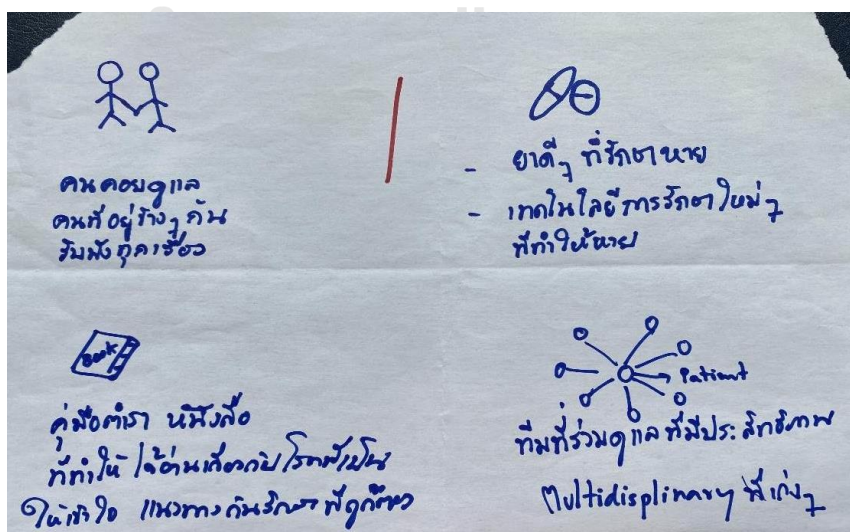 คนคอยดูแล
คนที่อยู่ข้างๆ กัน
รับฟังทุกเรื่อง
- ยาดีๆ ที่รักษาหาย
- เทคโนโลยีการรักษาใหม่ๆ
ที่ทำให้หาย
Book
คู่มือตำรา หนังสือ
ที่ทำให้ได้อ่านเกี่ยวกับโรคที่เป็น
ให้เข้าใจ แนวทางการรักษาที่ถูกต้อง
Patient
ทีมที่ร่วมดูแลที่มีประสิทธิภาพ
Multidisplinary ที่เก่งๆ